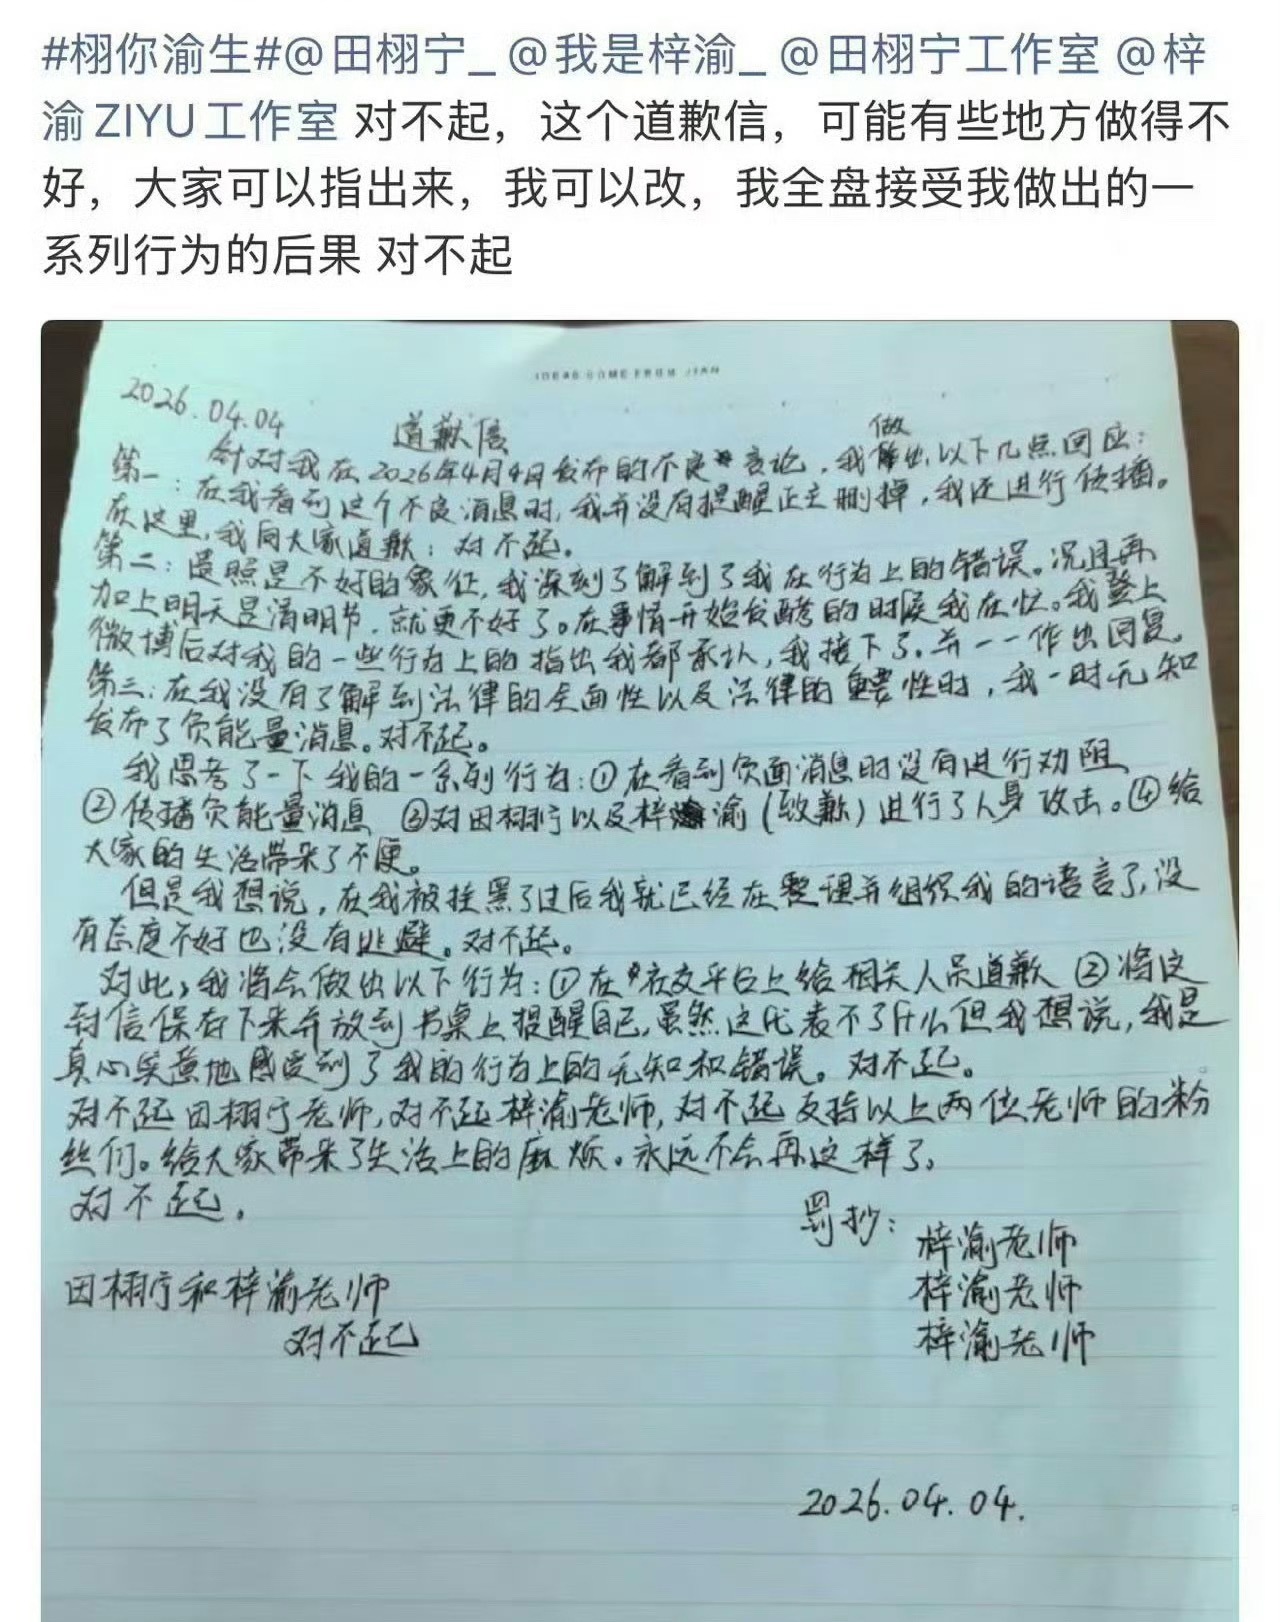 #栩你渝生#@田栩宁_ @我是梓渝_ @田栩宁工作室 @梓
渝ZIYU工作室 对不起，这个道歉信，可能有些地方做得不
好，大家可以指出来，我可以改，我全盘接受我做出的一
系列行为的后果 对不起
IDEAS COME FROM
2026.04.04
道歉信
针对我在2026年4月4日发布的不良言论，我做出以下几点回应：
第一：在我看到这个不良消息时，我并没有提醒正主删掉，我还进行传播。
在这里，我向大家道歉：对不起。
第二：遗照是不好的象征，我深刻了解到了我在行为上的错误。况且再
加上明天是清明节，就更不好了。在事情开始发酵的时候我在忙。我登上
微博后对我的一些行为上的指出我都承认，我接下了。并一一作出回复。
第三：在我没有了解到法律的全面性以及法律的重要性时，我一时无知
发布了负能量消息。对不起。
我思考了一下我的一系列行为：①在看到负面消息时没有进行劝阻
②传播负能量消息 ③对田栩宁以及梓渝（致歉）进行了人身攻击。④给
大家的生活带来了不便。
但是我想说，在我被挂黑了过后我就已经在整理并组织我的语言了，没
有态度不好也没有逃避。对不起。
对此，我将会做出以下行为：①在社交平台上给相关人员道歉 ②将这
封信保存下来并放到书桌上提醒自己，虽然这代表不了什么但我想说，我是
真心实意地感受到了我的行为上的无知和错误。对不起。
对不起田栩宁老师，对不起梓渝老师，对不起支持以上两位老师的粉
丝们。给大家带来了生活上的麻烦。永远不会再这样了。
对不起。
罚抄：
梓渝老师
梓渝老师
梓渝老师
田栩宁和梓渝老师
对不起
2026.04.04.